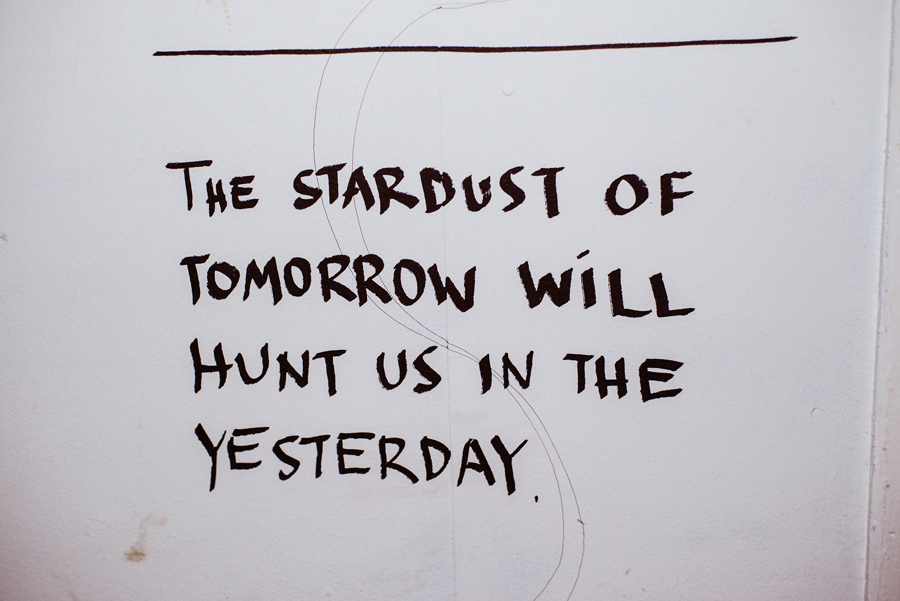 THE STARDUST OF
TOMORROW WiLL
HUNT US IN THE
YESTERDAY.